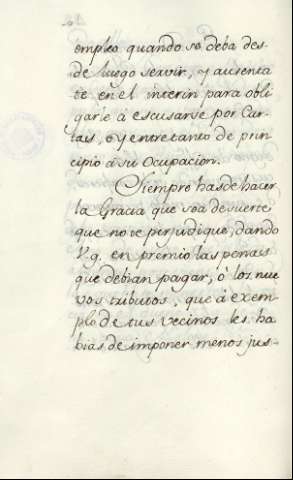 empleo quando se deba des-
de luego servir, y ausenta
te en el interin para obli
garle á escusarse por Car-
tas, ó y entretanto dè prin
cipio à su Ocupacion.
Siempre has de hacer
la Gracia que sea de suerte
que no te perjudique, dando
V.g. en premio las penas
que debian pagar, ò los nue
vos tributos, que à exem-
plo de tus vecinos les ha
bias de imponer menos jus-